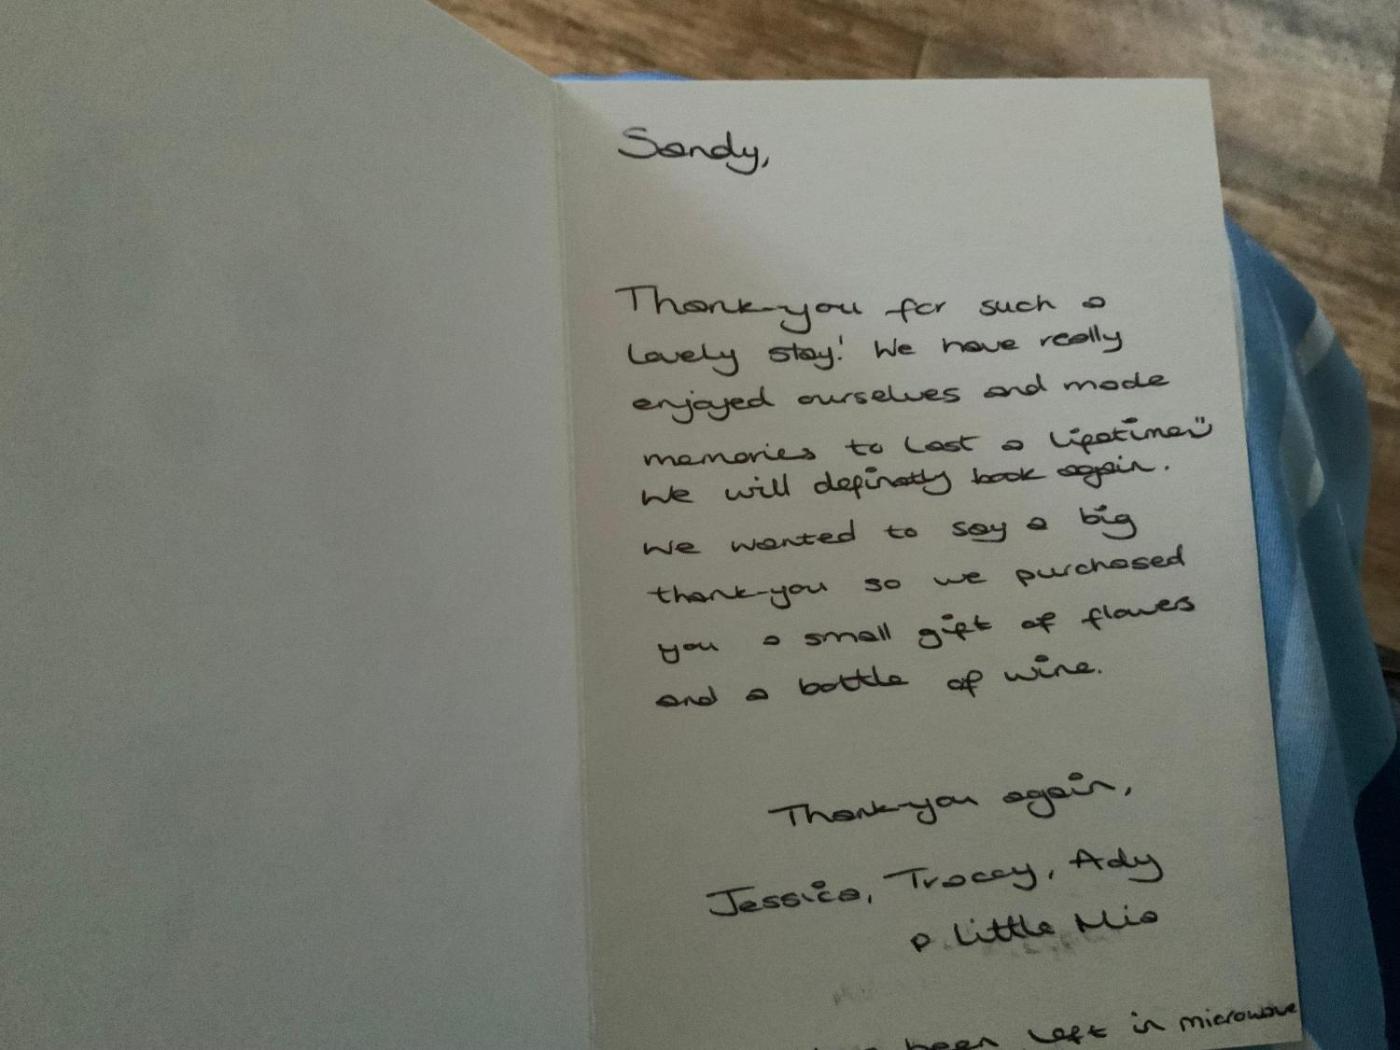 Sandy,
Thank-you for such a
lovely stay! We have really
enjoyed ourselves and made
memories to last a lifetime!!
We will definatly book again.
We wanted to say a big
thank-you so we purchased
you a small gift of flowers
and a bottle of wine.
Thank-you again,
Jessica, Tracey, Ady
& Little Mia
been left in microwave